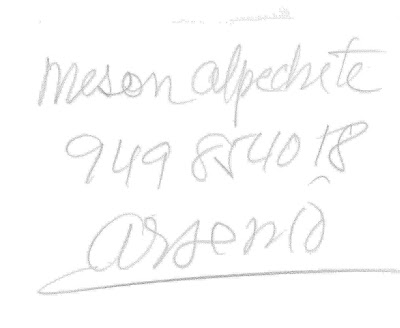 Meson alpechite
949 854018
Arsenio